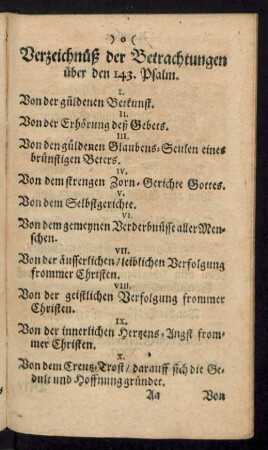 ) o (
Verzeichnüß der Betrachtungen
über den 143. Psalm.
I.
Von der güldenen Betkunst.
II.
Von der Erhörung deß Gebets.
III.
Von den güldenen Glaubens-Seulen eines
brünstigen Beters.
IV.
Von dem strengen Zorn-Gerichte Gottes.
V.
Von dem Selbstgerichte.
VI.
Von dem gemeynen Verderbnüsse aller Men-
schen.
VII.
Von der äusserlichen/leiblichen Verfolgung
frommer Christen.
VIII.
Von der geistlichen Verfolgung frommer
Christen.
IX.
Von der innerlichen Hertzens-Angst from-
mer Christen.
X.
Von dem Creutz-Trost/ darauff sich die Ge-
dult und Hoffnung gründet.
Aa Von